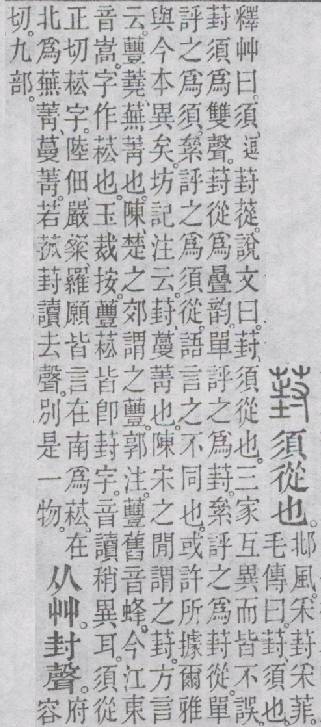 葑 須從也。
邶風。采葑采菲。
毛傳曰。葑、須也。
釋艸曰。須、逗葑蓯。說文曰。葑、須從也。三家互異而皆不誤。
葑須爲雙聲。葑從爲疊韵。單評之爲葑。絫評之爲葑從。單
評之爲須。絫評之爲須從。語言之不同也。或許所據爾雅
與今本異矣。坊記注云。葑、蔓菁也。陳宋之閒謂之葑。方言
云。蘴蕘、蕪菁也。陳楚之郊謂之蘴。郭注。蘴舊音蜂。今江東
音嵩。字作菘也。玉裁按蘴菘皆卽葑字。音讀稍異耳。須從
正切菘字。陸佃嚴粲羅願皆言在南爲菘。在
北爲蕪菁、蔓菁。若菰葑讀去聲。別是一物。
从艸封聲。
府
容
切。九部。